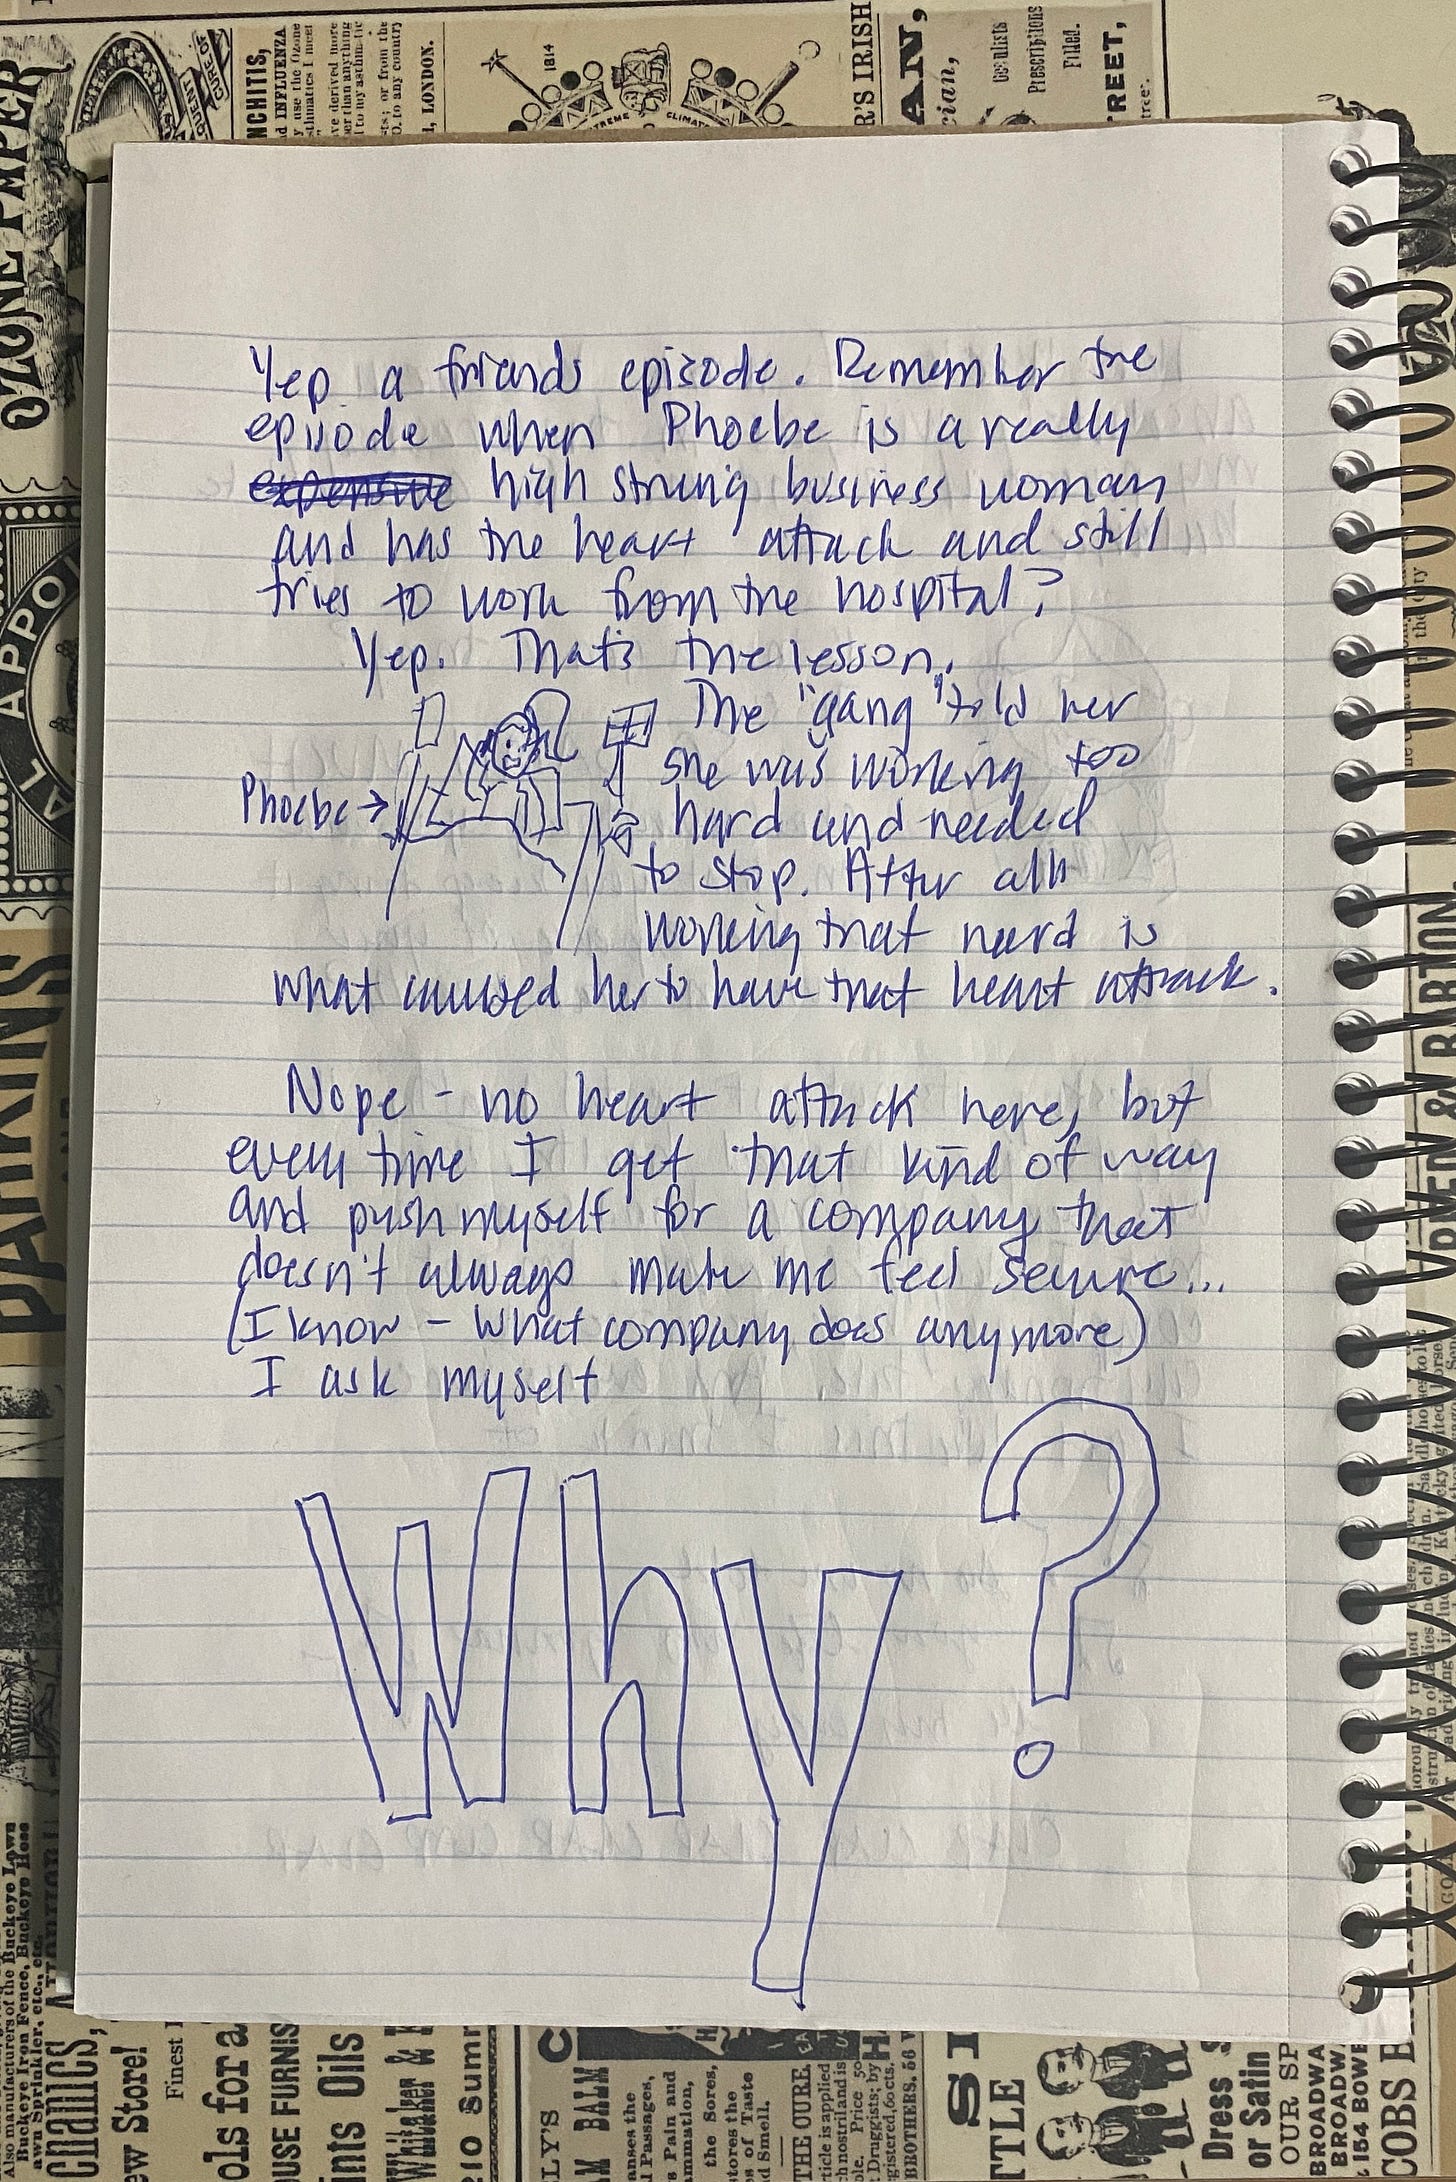 Yep a friends episode. Remember the
episode when Phoebe is a really
expensive high strung business woman
and has the heart attack and still
tries to work from the hospital?
Yep. That's the lesson.
The "gang" told her
she was working too
Phoebe → hard and needed
to stop. After all
working that hard is
what caused her to have that heart attack.
Nope - no heart attack here, but
every time I get that kind of way
and push myself for a company that
doesn't always make me feel secure...
(I know - what company does anymore)
I ask myself
Why?
OZONE PAPER
NCHITIS,
d INFLUENZA
1814
, LONDON.
R'S IRISH
AN,
cian,
Oculists
Prescriptions
Filled.
TREET,
AL APPOI
PARKINS
& BARTON
chanics,
ew Store!
Finest
ols for a
OUSE FURNIS
ints Oils
210 Sum
LY'S C
AM BALM
THE CURE.
TTLE
Dress S
or Satin
OUR SP
BROADWA
BROADW.
154 BOWE
COBS